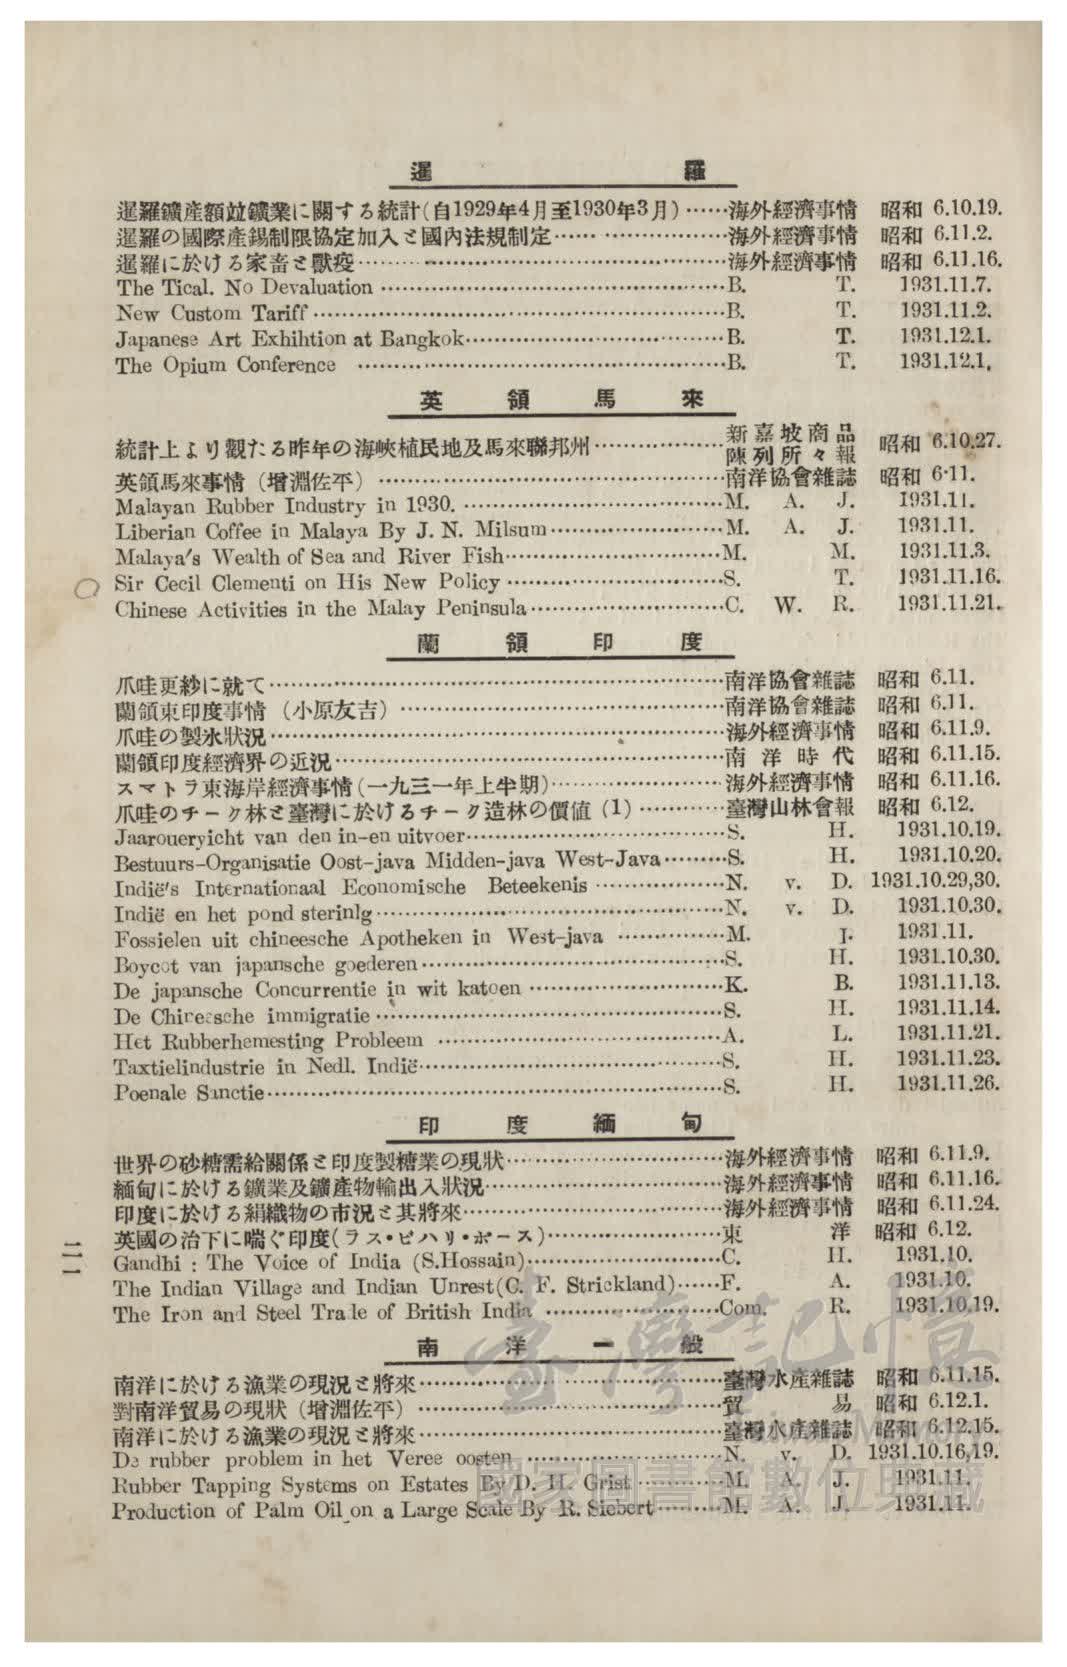 暹羅
暹羅鑛產額竝鑛業に關する統計(自1929年4月至1930年3月)……海外經濟事情 昭和 6.10.19.
暹羅の國際產錫制限協定加入と國內法規制定……海外經濟事情 昭和 6.11.2.
暹羅に於ける家畜と獸疫……海外經濟事情 昭和 6.11.16.
The Tical. No Devaluation……B. T. 1931.11.7.
New Custom Tariff……B. T. 1931.11.2.
Japanese Art Exhihtion at Bangkok……B. T. 1931.12.1.
The Opium Conference ……B. T. 1931.12.1.
英領馬來
統計上より觀たる昨年の海峽植民地及馬來聯邦州……新嘉坡商品陳列所々報 昭和 6.10.27.
英領馬來事情（增淵佐平）……南洋協會雜誌 昭和 6.11.
Malayan Rubber Industry in 1930. ……M. A. J. 1931.11.
Liberian Coffee in Malaya By J. N. Milsum……M. A. J. 1931.11.
Malaya's Wealth of Sea and River Fish……M. M. 1931.11.3.
Sir Cecil Clementi on His New Policy……S. T. 1931.11.16.
Chinese Activities in the Malay Peninsula……C. W. R. 1931.11.21.
蘭領印度
爪哇更紗に就て……南洋協會雜誌 昭和 6.11.
蘭領東印度事情（小原友吉）……南洋協會雜誌 昭和 6.11.
爪哇の製氷狀況……海外經濟事情 昭和 6.11.9.
蘭領印度經濟界の近況……南洋時代 昭和 6.11.15.
スマトラ東海岸經濟事情(一九三一年上半期)……海外經濟事情 昭和 6.11.16.
爪哇のチーク林と臺灣に於けるチーク造林の價値 (1) ……臺灣山林會報 昭和 6.12.
Jaaroueryicht van den in-en uitvoer……S. H. 1931.10.19.
Bestuurs-Organisatie Oost-java Midden-java West-Java……S. H. 1931.10.20.
Indië's Internationaal Economische Beteekenis ……N. v. D. 1931.10.29,30.
Indië en het pond sterinlg……N. v. D. 1931.10.30.
Fossielen uit chineesche Apotheken in West-java ……M. I. 1931.11.
Boycot van japansche goederen……S. H. 1931.10.30.
De japansche Concurrentie in wit katoen ……K. B. 1931.11.13.
De Chineesche immigratie……S. H. 1931.11.14.
Het Rubberhemesting Probleem ……A. L. 1931.11.21.
Taxtielindustrie in Nedl. Indië……S. H. 1931.11.23.
Poenale Sanctie……S. H. 1931.11.26.
印度緬甸
世界の砂糖需給關係と印度製糖業の現狀……海外經濟事情 昭和 6.11.9.
緬甸に於ける鑛業及鑛產物輸出入狀況……海外經濟事情 昭和 6.11.16.
印度に於ける絹織物の市況と其將來……海外經濟事情 昭和 6.11.24.
英國の治下に喘ぐ印度(ラス・ビハリ・ボース)……東洋 昭和 6.12.
Gandhi : The Voice of India (S.Hossain)……C. H. 1931.10.
The Indian Village and Indian Unrest(C. F. Strickland)……F. A. 1931.10.
The Iron and Steel Trade of British India ……Com. R. 1931.10.19.
南洋一般
南洋に於ける漁業の現況と將來……臺灣水產雜誌 昭和 6.11.15.
對南洋貿易の現狀（增淵佐平）……貿易 昭和 6.12.1.
南洋に於ける漁業の現況と將來……臺灣水產雜誌 昭和 6.12.15.
De rubber problem in het Veree oosten……N. v. D. 1931.10.16,19.
Rubber Tapping Systems on Estates By D. H. Grist……M. A. J. 1931.11.
Production of Palm Oil on a Large Scale By R. Siebert……M. A. J. 1931.11.
二一
臺灣記憶
Taiwan Memory
國家圖書館數位典藏